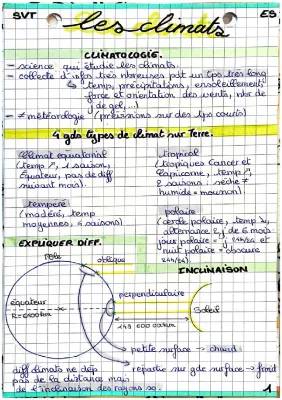 SVT
ES
les climats
CLIMATOLOGIE.
- science qui étudie les climats.
- collecte d'infos très nbreuses pdt un tps très long
↳ temp, précipitations, ensoleillement,
force et orientation des vents, nbr de
j de gel, ...)
- ≠ météorologie (prévisions sur des tps courts)
4 gds types de climat sur Terre.
climat équatorial
(temp ↗, 1 saison,
Équateur, pas de diff
suivant mois).
tropical
(tropiques Cancer et
Capricorne, temp ↗,
2 saisons : sèche ≠
humide = mousson)
tempéré
(modéré, temp
moyennes, 4 saisons)
polaire
(cercle polaire, temp ↘,
alternance de 6 mois
jour polaire = j 24h/24 et
nuit polaire = obscure
24h/24).
EXPLIQUER DIFF.
Pôle
oblique
INCLINAISON
Équateur
R=6400km
perpendiculaire
Soleil
149 600 000km
petite surface → chaud
répartie sur gde surface → froid
diff climats ne dép
pas de la distance mais
de l'inclinaison des rayons so.
1